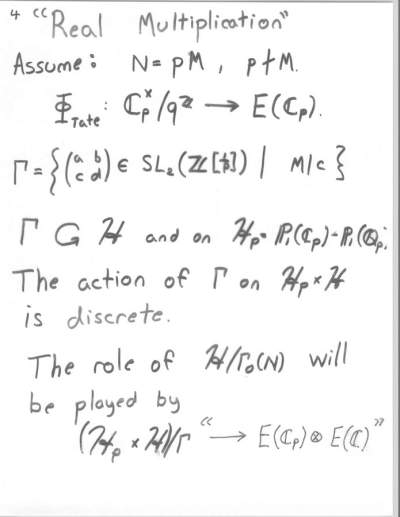 4 “Real Multiplication”
Assume: N = pM, p∤M.
Φ_Tate : ℂ_p^×/q^ℤ → E(ℂ_p).
Γ = {(a b c d) ∈ SL₂(ℤ[1/p]) | M|c}
Γ G ℋ and on ℋ_p = ℙ₁(ℂ_p) - ℙ₁(ℚ_p).
The action of Γ on ℋ_p × ℋ
is discrete.
The role of ℋ/Γ₀(N) will
be played by
(ℋ_p × ℋ)/Γ “→ E(ℂ_p) ⊗ E(ℂ)”